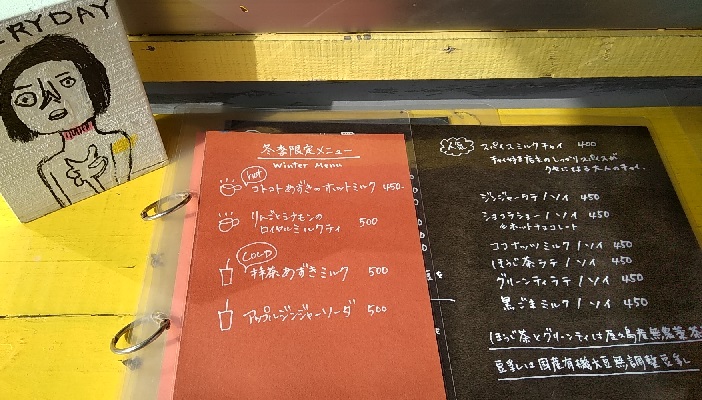 ERYDAY
冬季限定メニュー
Winter Menu
Hot
コトコトあずきのホットミルク 450-
りんごとシナモンの
ロイヤルミルクティ 500
COLD
抹茶あずきミルク 500
アップルジンジャーソーダ 500
人気
スパイスミルクチャイ 400
チャイ好き店主のしっかりスパイスが
クセになる大人のチャイ。
ジンジャーラテ / ソイ 450
ショコラショー / ソイ 450
ホットチョコレート
ココナッツミルク / ソイ 450
ほうじ茶ラテ / ソイ 450
グリーンティラテ / ソイ 450
黒ごまミルク / ソイ 450
ほうじ茶とグリーンティは屋久島産無農薬茶
豆乳は国産有機大豆無調整豆乳